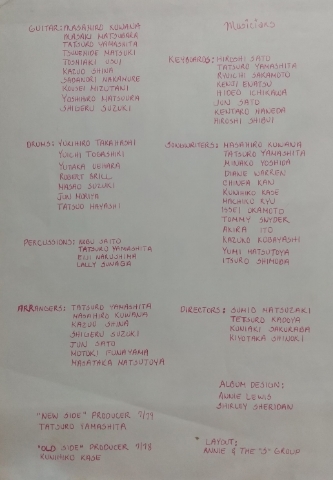 Musicians
GUITAR: MASAHIRO KUWANA
MASAKI MATSUBARA
TATSURO YAMASHITA
TSUNEHIDE MATSUKI
TOSHIAKI USUI
KAZUO SHINA
SADANORI NAKAMURE
KOUSEI MIZUTANI
YOSHIHIRO MATSUURA
SHIGERU SUZUKI
KEYBOARDS: HIROSHI SATO
TATSURO YAMASHITA
RYUICHI SAKAMOTO
KENJI ENATSU
HIDEO ICHIKAWA
JUN SATO
KENTARO HANEDA
HIROSHI SHIBUI
DRUMS: YUKIHIRO TAKAHASHI
YUICHI TOGASHIKI
YUTAKA UEHARA
ROBERT BRILL
MASAO SUZUKI
JUN MORIYA
TATSUO HAYASHI
SONGWRITERS: MASAHIRO KUWANA
TATSURO YAMASHITA
MINAKO YOSHIDA
DIANE WARREN
CHINFA KAN
KUNIHIKO KASE
MACHIKO RYU
ISSEI OKAMOTO
TOMMY SNYDER
AKIRA ITO
KAZUKO KOBAYASHI
YUMI MATSUTOYA
ITSURO SHIMODA
PERCUSSIONS: NOBU SAITO
TATSURO YAMASHITA
EIJI NARUSHIMA
LALLY SUNAGA
ARRANGERS: TATSURO YAMASHITA
MASAHIRO KUWANA
KAZUO SHINA
SHIGERU SUZUKI
JUN SATO
MOTOKI FUNAYAMA
MASATAKA MATSUTOYA
DIRECTORS: SUMIO MATSUZAKI
TETSURO KADOYA
KUNIAKI SAKURABA
KIYOTAKA
ALBUM DESIGN:
ANNIE LEWIS
SHIRLEY SHERIDAN
"NEW SIDE" PRODUCER
TATSURO YAMASHITA
"OLD SIDE" PRODUCER
KUNIHIKO KASE
LAYOUT:
ANNIE & THE "S" GROUP